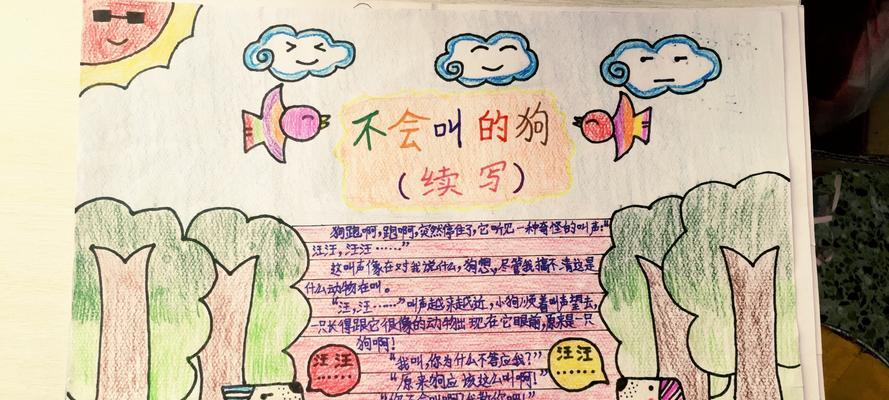 不会叫的狗
(续写)
狗跑啊，跑啊，突然停住了，它听见一种奇怪的叫声："
汪汪，汪汪……"
这叫声像在对我说什么，狗想，尽管我搞不清这是
什么动物在叫。
"汪，汪……"叫声越来越近，小狗顺着叫声望去，
一只长得跟它很像的动物出现在它眼前，原来是一只
狗啊！
"我叫，你为什么不答应我？"
"原来狗应该这么叫啊！"
"你不会叫啊？我教你吧！"
汪汪
……
汪汪
……